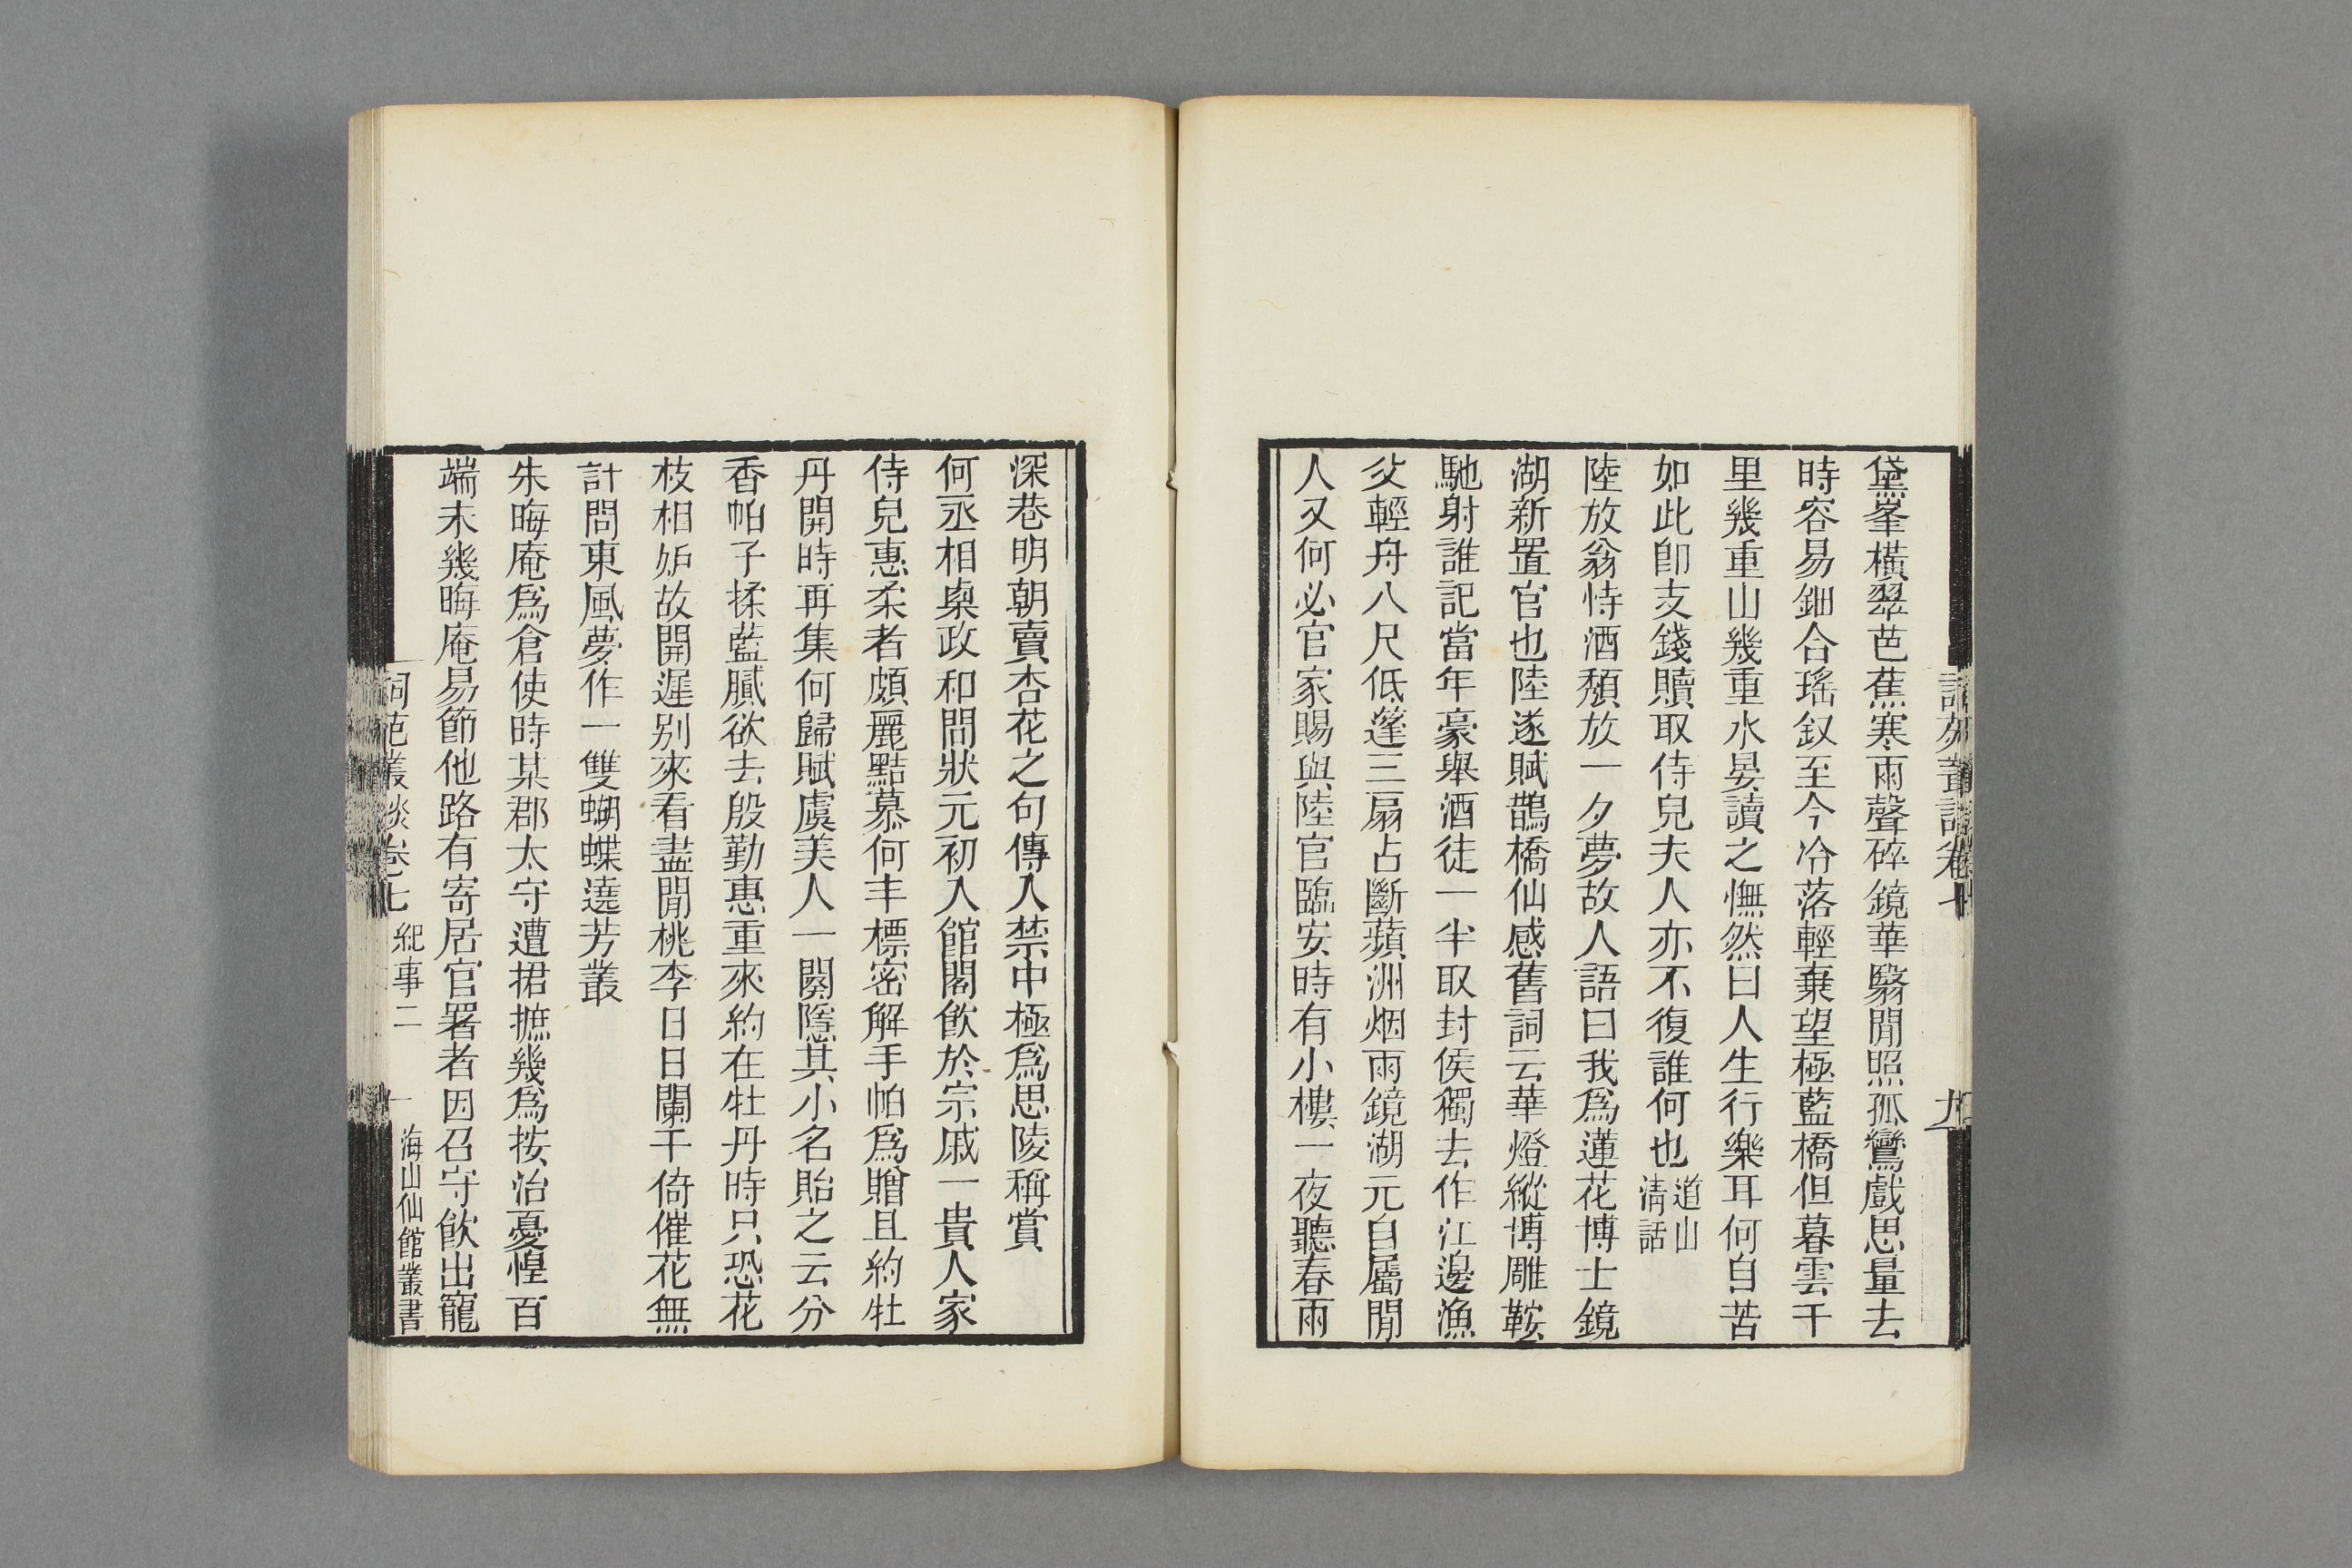 黛峯橫翠芭蕉寒雨聲碎鏡華翳閒照孤鸞戲思量去
時容易鈿合瑤釵至今冷落輕棄望極藍橋但暮雲千
里幾重山幾重水晏讀之憮然曰人生行樂耳何自苦
如此卽支錢贖取侍兒夫人亦不復誰何也道山清話
陸放翁恃酒頹放一夕夢故人語曰我爲蓮花博士鏡
湖新置官也陸遂賦鵲橋仙感舊詞云華燈縱博雕鞍
馳射誰記當年豪舉酒徒一半取封侯獨去作江邊漁
父輕舟八尺低蓬三扇占斷蘋洲烟雨鏡湖元自屬閒
人又何必官家賜與陸官臨安時有小樓一夜聽春雨
深巷明朝賣杏花之句傳入禁中極爲思陵稱賞
何丞相㮚政和問狀元初入館閣飲於宗戚一貴人家
侍兒惠柔者頗麗黠慕何丰標密解手帕爲贈且約牡
丹開時再集何歸賦虞美人一闋隱其小名貽之云分
香帕子揉藍膩欲去殷勤惠重來約在牡丹時只恐花
枝相妒故開遲别來看盡閒桃李日日闌干倚催花無
計問東風夢作一雙蝴蝶遶芳叢
朱晦庵爲倉使時某郡太守遭捃摭幾爲按治憂惶百
端未幾晦庵易節他路有寄居官署者因召守飲出寵
詞苑叢談卷七 紀事二 海山仙館叢書